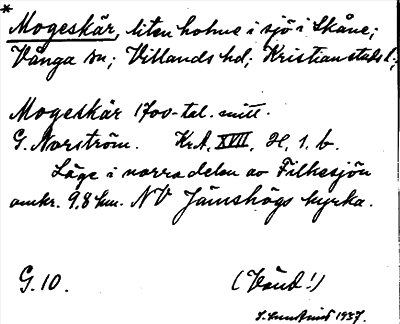 * Mogeskär, liten holme i sjö i Skåne;
Vånga sn; Villands hd; Kristianstads l.;
Mogeskär 1700-tal. mitt.
G. Norström. KrA, XVII, H, 1, b.
Läge i norra delen av Filkesjön
omkr. 9,8 km. NV Jämshögs kyrka.
G. 10. (Vänd!)
1937.